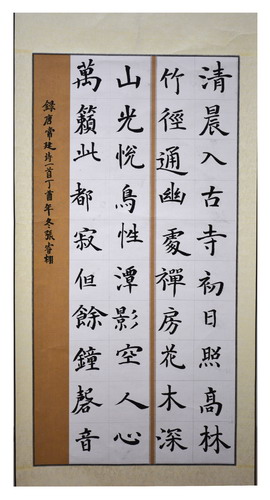 清晨入古寺初日照高林
竹徑通幽處禪房花木深
山光悅鳥性潭影空人心
萬籟此都寂但餘鐘磬音
錄唐常建詩一首丁酉年冬張